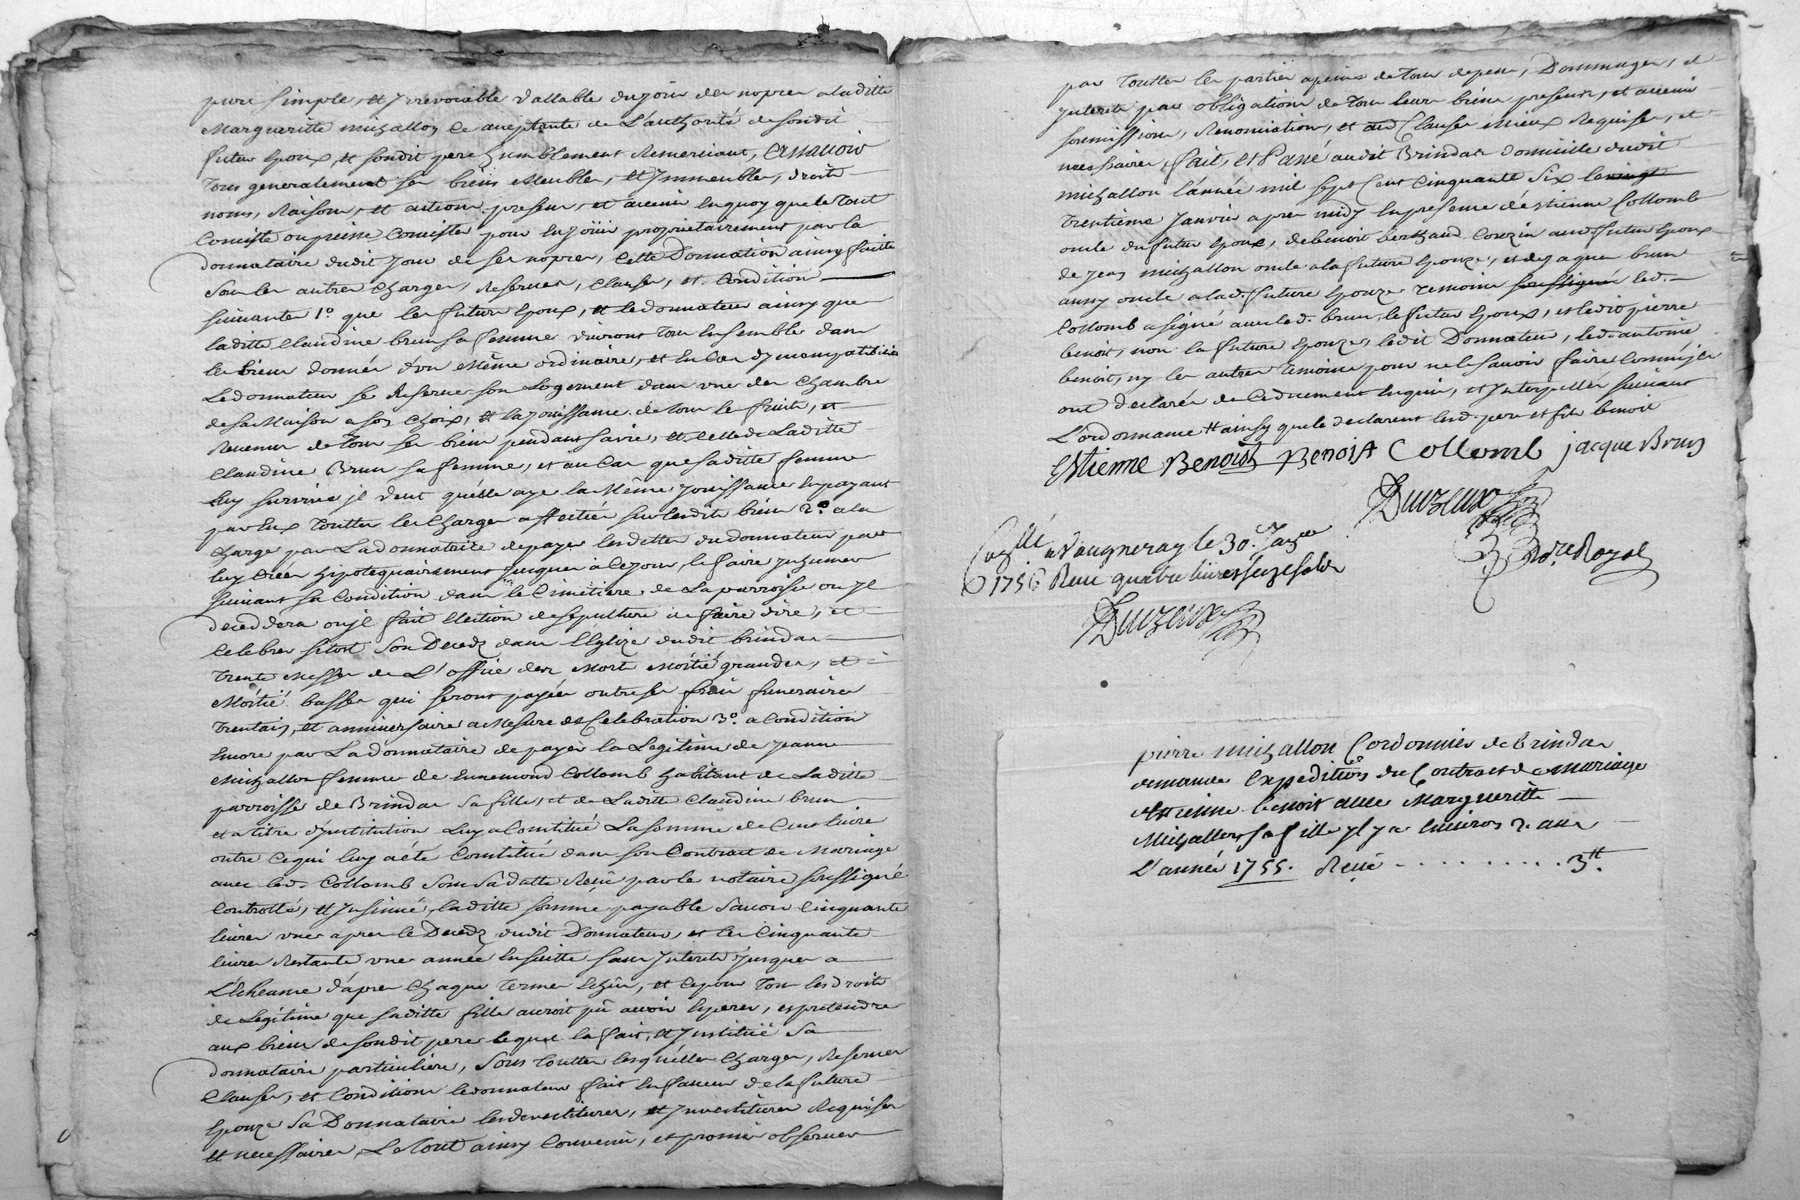 pure simple, et Irrevocable vallable du jour de nopces a laditte
Margueritte michallon ce aceptante de L'authorité de sondit
futur Epoux, et sondit pere humblement Remerciant, Assavoir
tous generalement ses biens Meubles, et Immeubles, droits
noms, Raisons, et actions presens, et avenir en quoy que le tout
Consiste ou puisse Consister pour en joüir proprietairement par la
donnataire dudit jour de ses nopces, Cette Donnation ainsy faitte
sous les autres charges, Reserves, Clauses, et Conditions
suivantes 1o. que les futurs Epoux, et le donnateur ainsy que
laditte Claudine brun sa femme vivront tous Ensembles dans
les biens donnés d'un Même ordinaire, et En Cas d'Incompatibilité
Le donnateur se Reserve son Logement dans une des Chambres
de sa Maison a son Choix, et la joüissance de tous les fruits, et
Revenus de tous ses biens pendant sa vie, et Celle de Laditte
Claudine Brun sa femme, et au Cas que saditte femme
luy survive jl veut qu'elle aye la Même Joüissance En payant
par Eux touttes les charges affectées sur lesdits biens 2o. a la
charge par La donnataire de payer les dettes du donnateur par
luy Créés hipotequairement jusques a Ce jour, le faire Inhumer
suivant sa Condition dans le Cimetiere de La parroisse ou Jl
deceddera ou jl fait Election de sepulture de faire dire, et
Celebrer sitost son Decedz dans l'Eglize dudit brindas
trente Messes de L'office des Morts Moitié grandes, et
Moitié basses qui seront payées outre ses frais funeraires
trentain, et anniversaire a Mesure de Celebration 3o. a Condition
Encore par La donnataire de payer la Legitime de jeanne
Michallon femme de Ennemond Collomb habitant de Laditte
parroisse de Brindas sa fille, et de Laditte Claudine brun
et a titre d'jnstitution Luy a Constitué La somme de Cent livres
outre Ce qui luy a été Constitué dans son Contract de Mariage
avec led. Collomb sous sa datte Reçû par le notaire soussigné
Controllé, et Insinué, laditte somme payable sçavoir Cinquante
livres une apres le Decedz dudit Donnateur, et les Cinquante
livres Restante une année Ensuitte sans Interets jusques a
L'Echeance d'apres Chaque terme Echeu, et Ce pour tous les droits
de Legitime que saditte fille auroit pû avoir Esperer, et pretendre
aux biens de sondit pere lequel la fait, et Institüé sa
donnataire particuliere, Sous touttes lesquelles Charges, Reserves
Clauses, et Conditions le donnateur fait En faveur de la future
Epouze sa Donnataire les devestitures, et Investitures Requises
et necessaires, Le tout ainsy Convenû, et promis observer
par touttes les parties a peines de tous depens, Dommages, et
Interets par obligations de tous leurs biens presens, et avenir
soumissions, Renonciation, et aux Clauses Mieux Requises, et
necessaires, fait, et Passé audit Brindas domicille dudit
michallon L'année mil sept Cent Cinquante six le vingt
trentieme Janvier apres midy En presence d'Etienne Collomb
oncle du futur Epoux, de benoit berthaud Couzin audit futur Epoux
de jean michallon oncle a la future Epouze, et de jaques brun
aussy oncle a lad. future Epouze temoins soussignés led.
Collomb a signé avec led. brun, le futur Epoux, et ledit pierre
benoit, non la future Epouze, ledit Donnateur, led. antoine
benoit, ny les autres temoins pour ne le sçavoir faire Comme jls
ont declarés de Ce duement Enquis, et Interpellés suivant
L'ordonnance # ainsy que le declarent lesd. pere et fils benoit
Estienne Benoist Benoist Collomb jacque Brun
Duvzeux
No.re Royal
Con.llé a Vaugneray le 30.e Janvier
1756 Recu quatre livres seize sols
Duvzeux
pierre michallon Cordonnier de brindas
demande Expedition du Contract de Mariage
d'Etienne benoit avec Margueritte
Michallon sa fille jl y a Environ 2. ans
L'année 1755. Recû . . . . . . . . . 3.tt